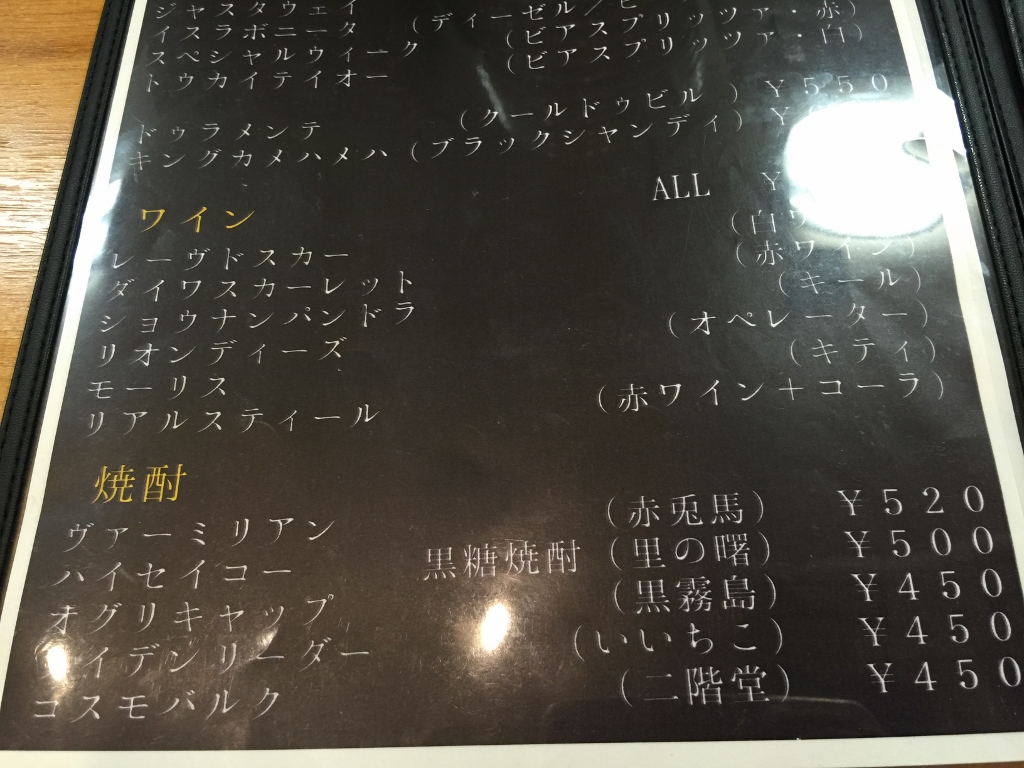 ジャスタウェイ (ディーゼル／ビ
イスラボニータ (ビアスプリッツァ・赤)
スペシャルウィーク (ビアスプリッツァ・白)
トウカイテイオー
ドゥラメンテ (クールドゥビル) ¥550
キングカメハメハ (ブラックシャンディ) ¥
ワイン ALL ¥
レーヴドスカー (白
ダイワスカーレット (赤ワイン)
ショウナンパンドラ (キール)
リオンディーズ (オペレーター)
モーリス (キティ)
リアルスティール (赤ワイン＋コーラ)
焼酎
ヴァーミリアン (赤兎馬) ¥520
ハイセイコー 黒糖焼酎 (里の曙) ¥500
オグリキャップ (黒霧島) ¥450
イデンリーダー (いいちこ) ¥450
コスモバルク (二階堂) ¥450